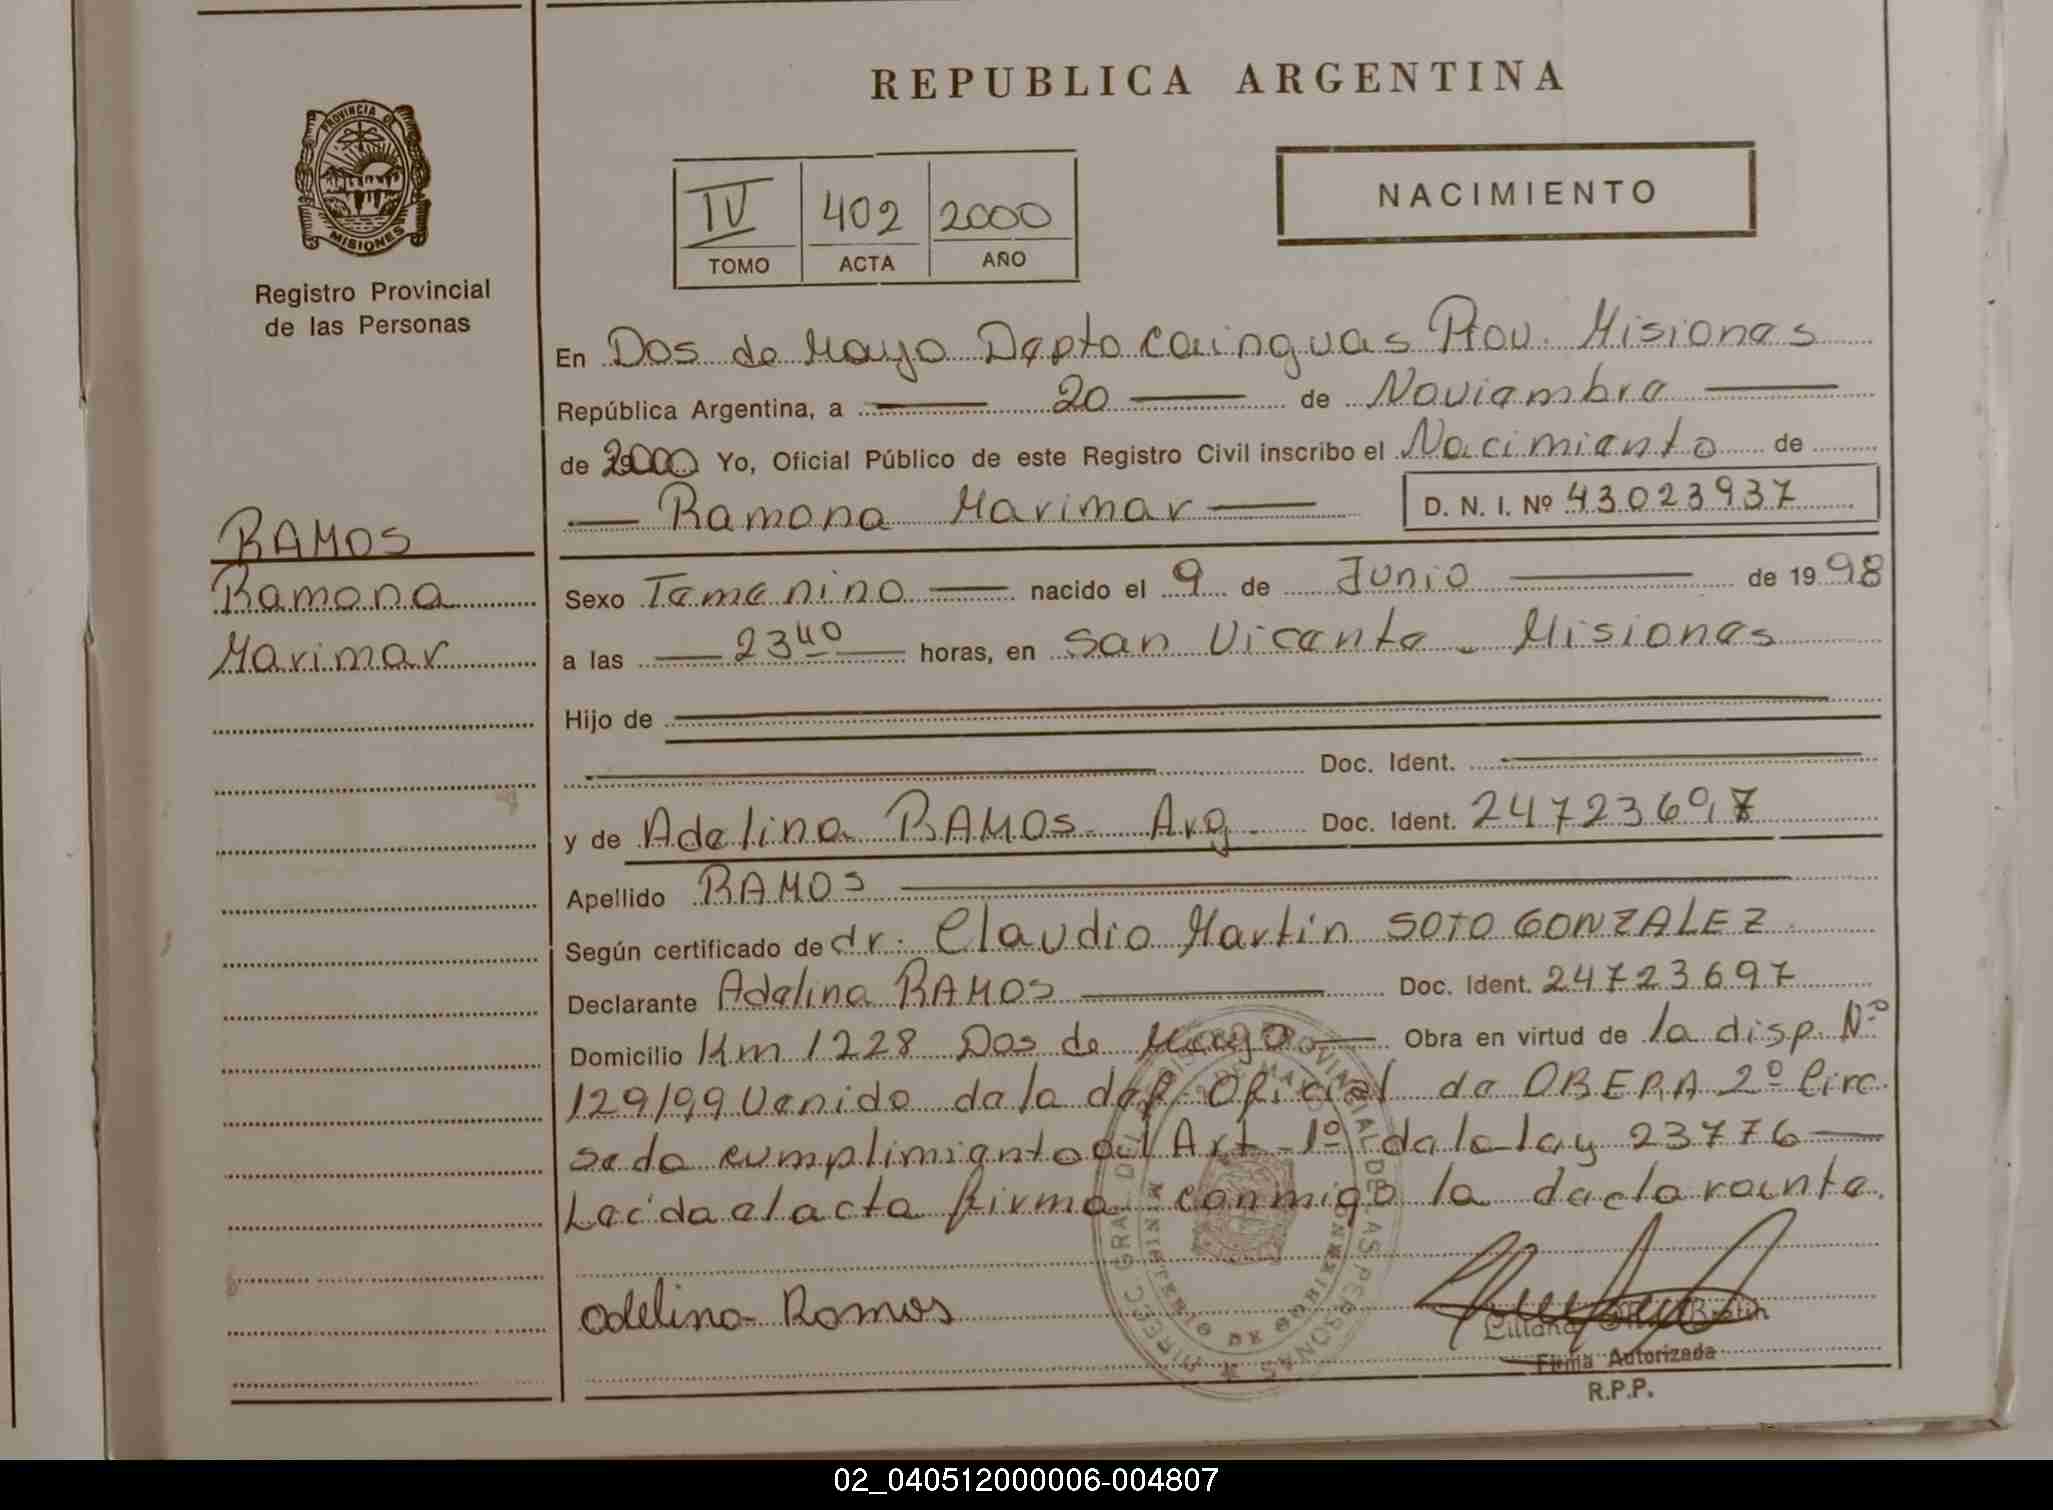 REPUBLICA ARGENTINA
PROVINCIA DE
MISIONES
Registro Provincial
de las Personas
IV 402 2000
TOMO ACTA AÑO
NACIMIENTO
En Dos de Mayo Depto Cainguas Prov. Misiones
República Argentina, a 20 de Noviembre
de 2000 Yo, Oficial Público de este Registro Civil inscribo el Nacimiento de
Ramona Marimar D. N. I. Nº 43023937
RAMOS
Ramona
Marimar
Sexo Femenino nacido el 9 de Junio de 19 98
a las 23 40 horas, en San Vicente - Misiones
Hijo de
Doc. Ident.
y de Adelina RAMOS - Arg - Doc. Ident. 24723697
Apellido RAMOS
Según certificado de dr. Claudio Martin SOTO GONZALEZ
Declarante Adelina RAMOS Doc. Ident. 24723697
Domicilio Km 1228 Dos de Mayo Obra en virtud de la disp. Nº
129/99 Venido de la def. Oficial de OBERA 2º Circ.
se da cumplimiento al Art - 1º de la ley 23776
Leída el acta firma conmigo la declarante.
Adelina Ramos
Liliana Bratin
Firma Autorizada
R.P.P.
DIREC. GRAL. DEL REGISTRO PROVINCIAL DE LAS PERSONAS
MINISTERIO DE GOBIERNO
02_040512000006-004807